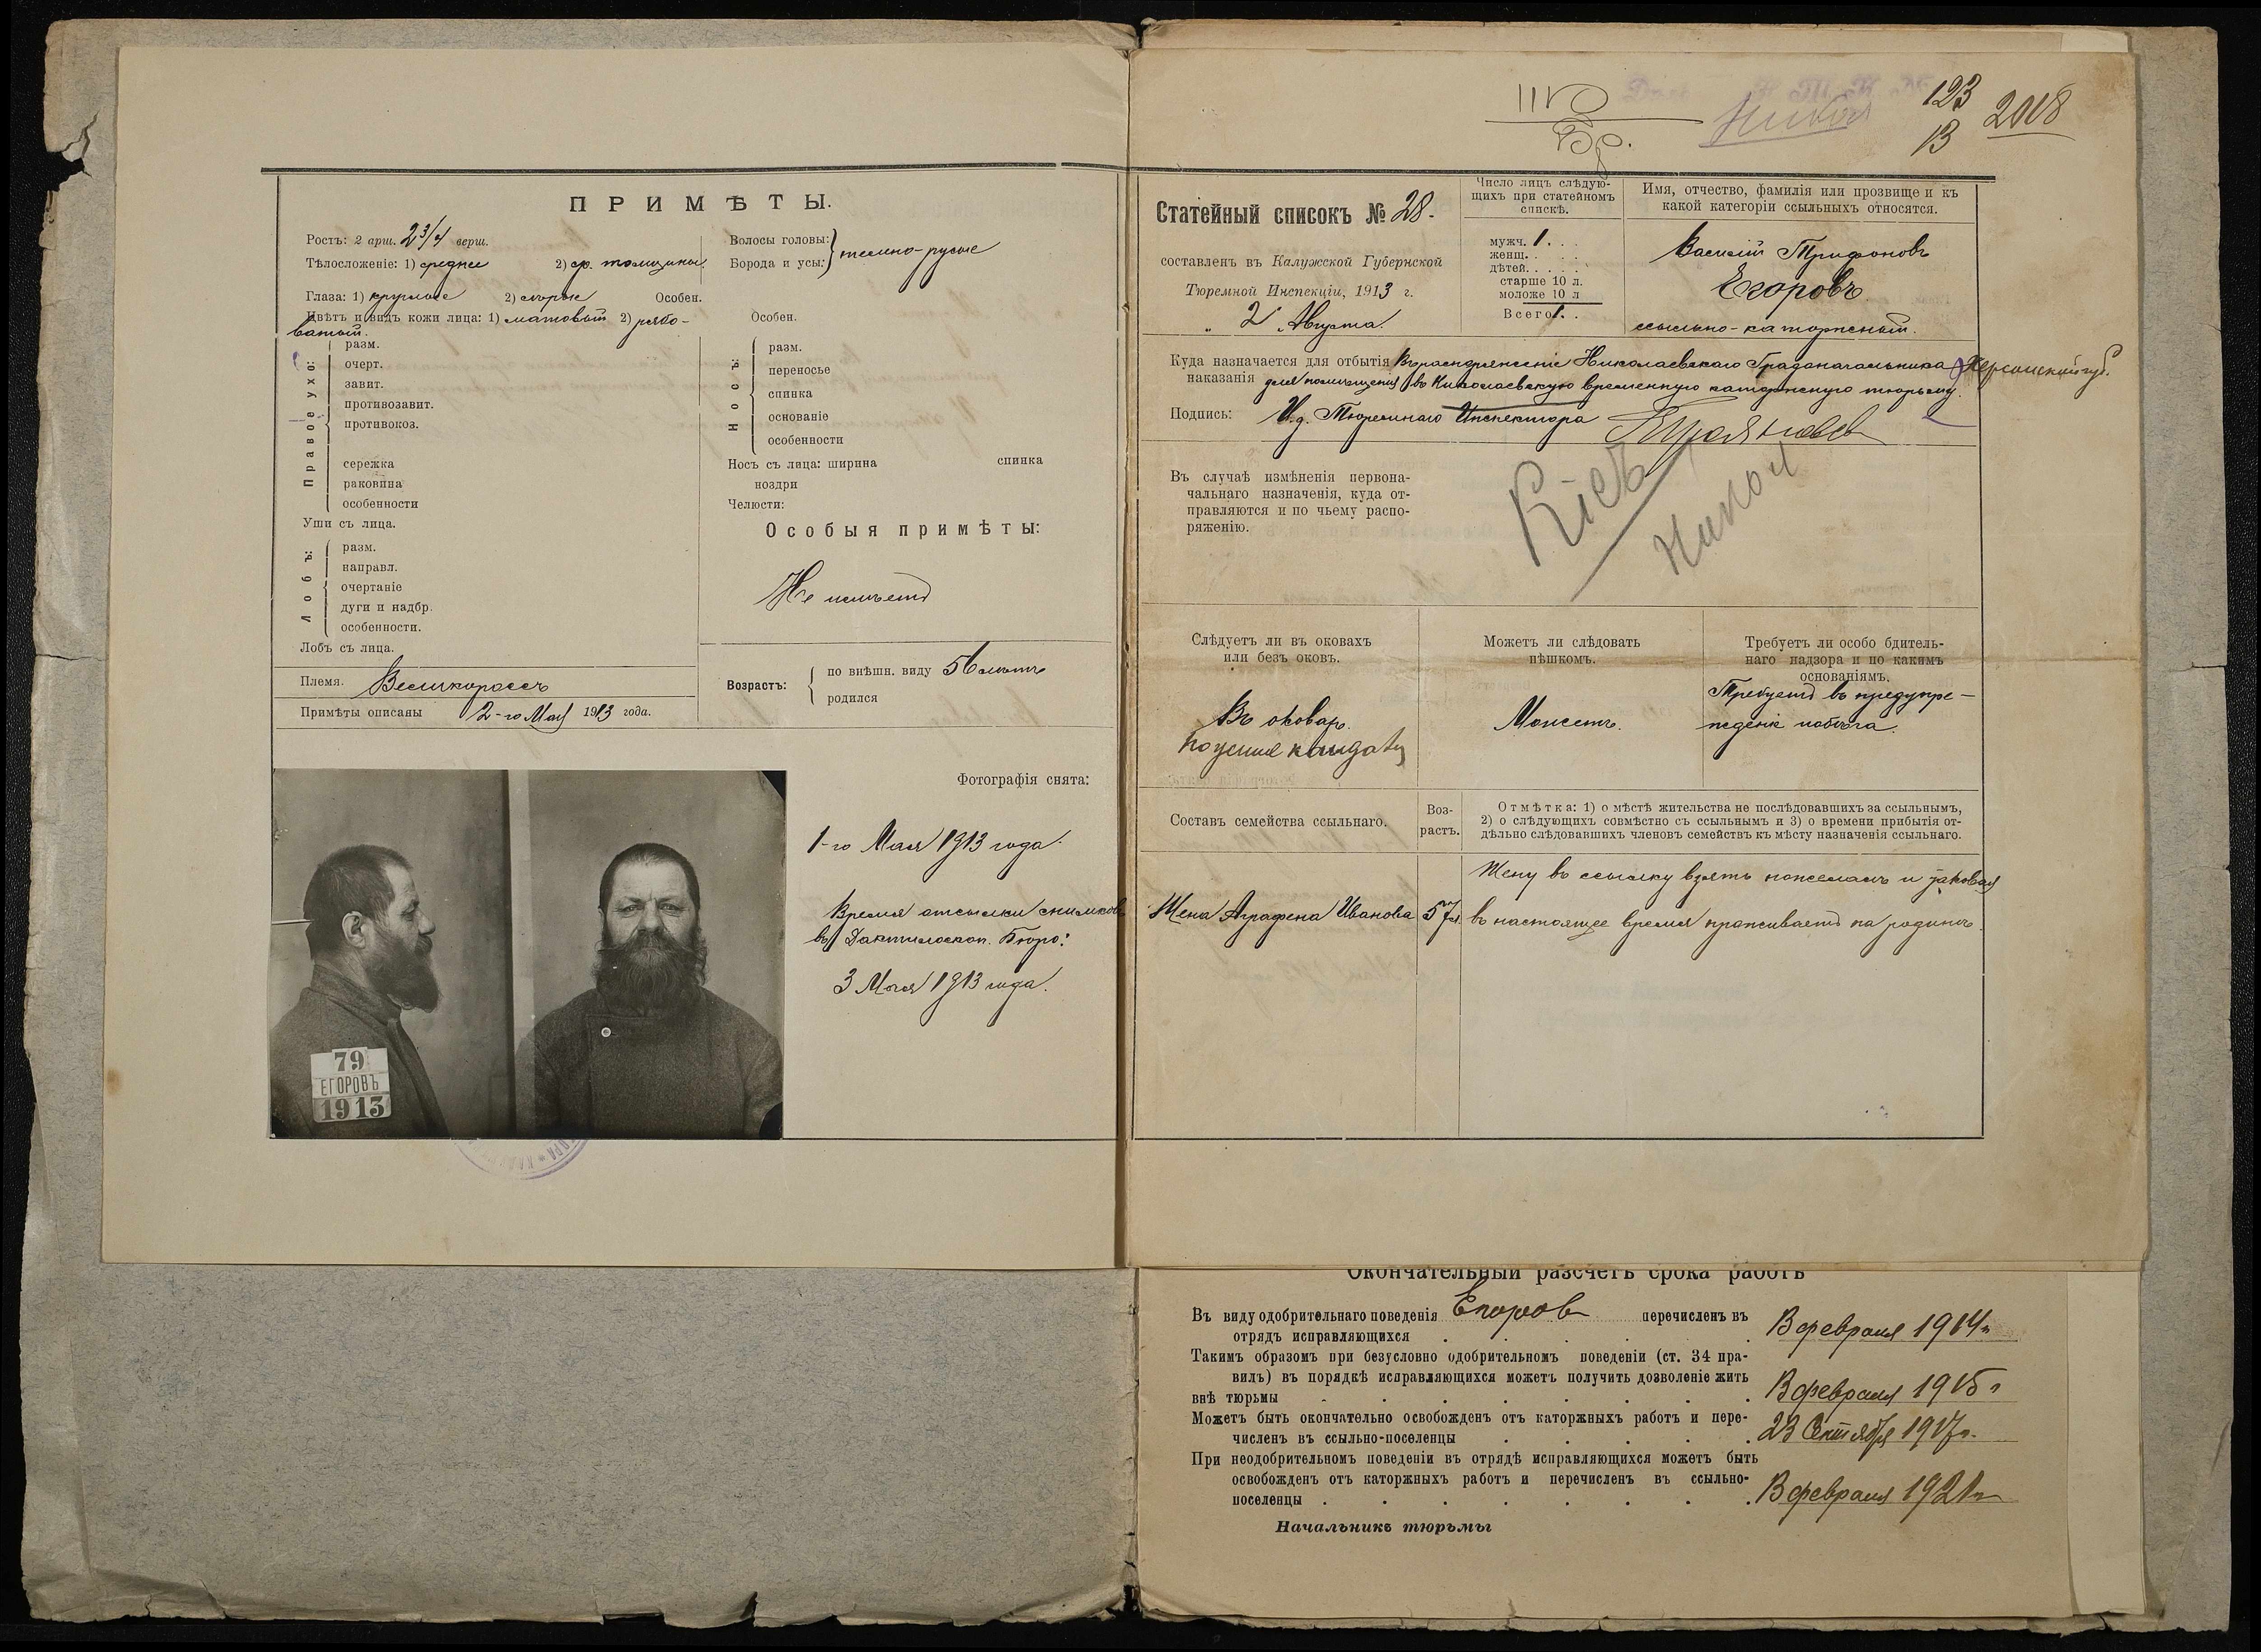 ПРИМѢТЫ.
Ростъ: 2 арш. 2 3/4 верш.
Тѣлосложеніе: 1) среднее 2) ср. толщины.
Глаза: 1) круглые 2) Особен.
Цвѣтъ и видъ кожи лица: 1) матовый 2) рябо-
ватый.
Правое ухо:
разм.
очерт.
завит.
противозавит.
противокоз.
сережка
раковина
особенности
Уши съ лица.
Лобъ:
разм.
направл.
очертаніе
дуги и надбр.
особенности.
Лобъ съ лица.
Племя. Великороссъ
Примѣты описаны 2-го Мая 1913 года.
Волосы головы:
Борода и усы:
темно-русые
Особен.
Носъ:
разм.
переносье
спинка
основаніе
особенности
Носъ съ лица: ширина спинка
ноздри
Челюсти:
Особыя примѣты:
Не имѣетъ
Возрастъ:
по внѣшн. виду 56 лѣтъ
родился
79
ЕГОРОВЪ
1913
Фотографія снята:
1-го Мая 1913 года.
Время отсылки снимковъ
въ Дактилоскоп. Бюро:
3 Мая 1913 года.
123
13
2018
Статейный списокъ № 28.
составленъ въ Калужской Губернской
Тюремной Инспекціи, 1913 г.
„ 2 „ Августа.
Число лицъ слѣдую-
щихъ при статейномъ
спискѣ.
мужч. 1. . .
женщ. . . .
дѣтей. . . . .
старше 10 л.
моложе 10 л
Всего 1. .
Имя, отчество, фамилія или прозвище и къ
какой категоріи ссыльныхъ относятся.
Василій Трифоновъ
Егоровъ
ссыльно-каторжный.
Куда назначается для отбытія Въ распоряженіе Николаевскаго Градоначальника Херсонской губ.
наказанія для помѣщенія въ Николаевскую временную каторжную тюрьму.
Подпись: И.д. Тюремнаго Инспектора
Въ случаѣ измѣненія первона-
чальнаго назначенія, куда от-
правляются и по чьему распо-
ряженію.
Кіевъ
Никол
Слѣдуетъ ли въ оковахъ
или безъ оковъ.
Въ оковахъ.
Можетъ ли слѣдовать
пѣшкомъ.
Можетъ.
Требуетъ ли особо бдитель-
наго надзора и по какимъ
основаніямъ.
Требуетъ въ предупре-
жденіе побѣга.
Составъ семейства ссыльнаго.
Воз-
растъ.
Отмѣтка: 1) о мѣстѣ жительства не послѣдовавшихъ за ссыльнымъ,
2) о слѣдующихъ совмѣстно съ ссыльнымъ и 3) о времени прибытія от-
дѣльно слѣдовавшихъ членовъ семействъ къ мѣсту назначенія ссыльнаго.
Жену въ ссылку взять пожелалъ и таковая
Жена Аграфена Иванова 57 л. въ настоящее время проживаетъ на родинѣ.
Окончательный разсчетъ срока работъ
Въ виду одобрительнаго поведенія Егоров перечисленъ въ
отрядъ исправляющихся . . . . . В февраля 1914 г.
Такимъ образомъ при безусловно одобрительномъ поведеніи (ст. 34 пра-
вилъ) въ порядкѣ исправляющихся можетъ получить дозволеніе жить
внѣ тюрьмы . . . . . . . В февраля 1915 г
Можетъ быть окончательно освобожденъ отъ каторжныхъ работъ и пере-
численъ въ ссыльно-поселенцы . . . . . 23 1917 г.
При неодобрительномъ поведеніи въ отрядѣ исправляющихся можетъ быть
освобожденъ отъ каторжныхъ работъ и перечисленъ въ ссыльно-
поселенцы . . . . . . . . В февраля 1921 г
Начальникъ тюрьмы